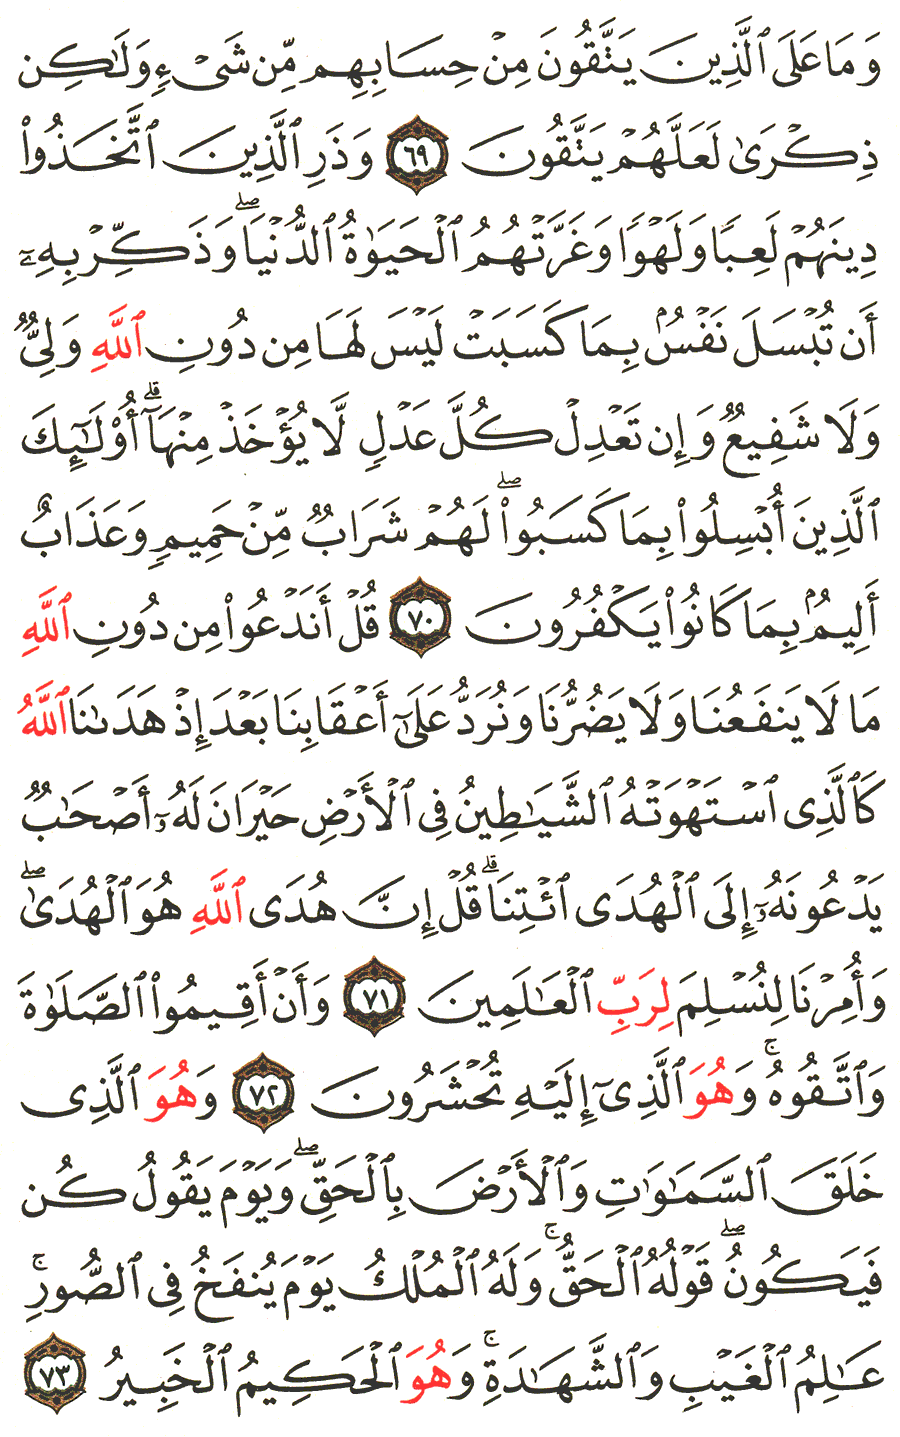 وَمَا عَلَى ٱلَّذِينَ يَتَّقُونَ مِنْ حِسَابِهِم مِّن شَىْءٍ وَلَـٰكِن
ذِكْرَىٰ لَعَلَّهُمْ يَتَّقُونَ ٦٩ وَذَرِ ٱلَّذِينَ ٱتَّخَذُوا۟
دِينَهُمْ لَعِبًا وَلَهْوًا وَغَرَّتْهُمُ ٱلْحَيَوٰةُ ٱلدُّنْيَا ۖ وَذَكِّرْ بِهِۦٓ
أَن تُبْسَلَ نَفْسٌۢ بِمَا كَسَبَتْ لَيْسَ لَهَا مِن دُونِ ٱللَّهِ وَلِىٌّ
وَلَا شَفِيعٌ وَإِن تَعْدِلْ كُلَّ عَدْلٍ لَّا يُؤْخَذْ مِنْهَآ ۗ أُو۟لَـٰٓئِكَ
ٱلَّذِينَ أُبْسِلُوا۟ بِمَا كَسَبُوا۟ ۖ لَهُمْ شَرَابٌ مِّنْ حَمِيمٍ وَعَذَابٌ
أَلِيمٌۢ بِمَا كَانُوا۟ يَكْفُرُونَ ٧٠ قُلْ أَنَدْعُوا۟ مِن دُونِ ٱللَّهِ
مَا لَا يَنفَعُنَا وَلَا يَضُرُّنَا وَنُرَدُّ عَلَىٰٓ أَعْقَابِنَا بَعْدَ إِذْ هَدَىٰنَا ٱللَّهُ
كَٱلَّذِى ٱسْتَهْوَتْهُ ٱلشَّيَـٰطِينُ فِى ٱلْأَرْضِ حَيْرَانَ لَهُۥٓ أَصْحَـٰبٌ
يَدْعُونَهُۥٓ إِلَى ٱلْهُدَى ٱئْتِنَا ۗ قُلْ إِنَّ هُدَى ٱللَّهِ هُوَ ٱلْهُدَىٰ ۖ
وَأُمِرْنَا لِنُسْلِمَ لِرَبِّ ٱلْعَـٰلَمِينَ ٧١ وَأَنْ أَقِيمُوا۟ ٱلصَّلَوٰةَ
وَٱتَّقُوهُ ۚ وَهُوَ ٱلَّذِىٓ إِلَيْهِ تُحْشَرُونَ ٧٢ وَهُوَ ٱلَّذِى
خَلَقَ ٱلسَّمَـٰوَٰتِ وَٱلْأَرْضَ بِٱلْحَقِّ ۖ وَيَوْمَ يَقُولُ كُن
فَيَكُونُ ۖ قَوْلُهُ ٱلْحَقُّ ۚ وَلَهُ ٱلْمُلْكُ يَوْمَ يُنفَخُ فِى ٱلصُّورِ ۚ
عَـٰلِمُ ٱلْغَيْبِ وَٱلشَّهَـٰدَةِ ۚ وَهُوَ ٱلْحَكِيمُ ٱلْخَبِيرُ ٧٣